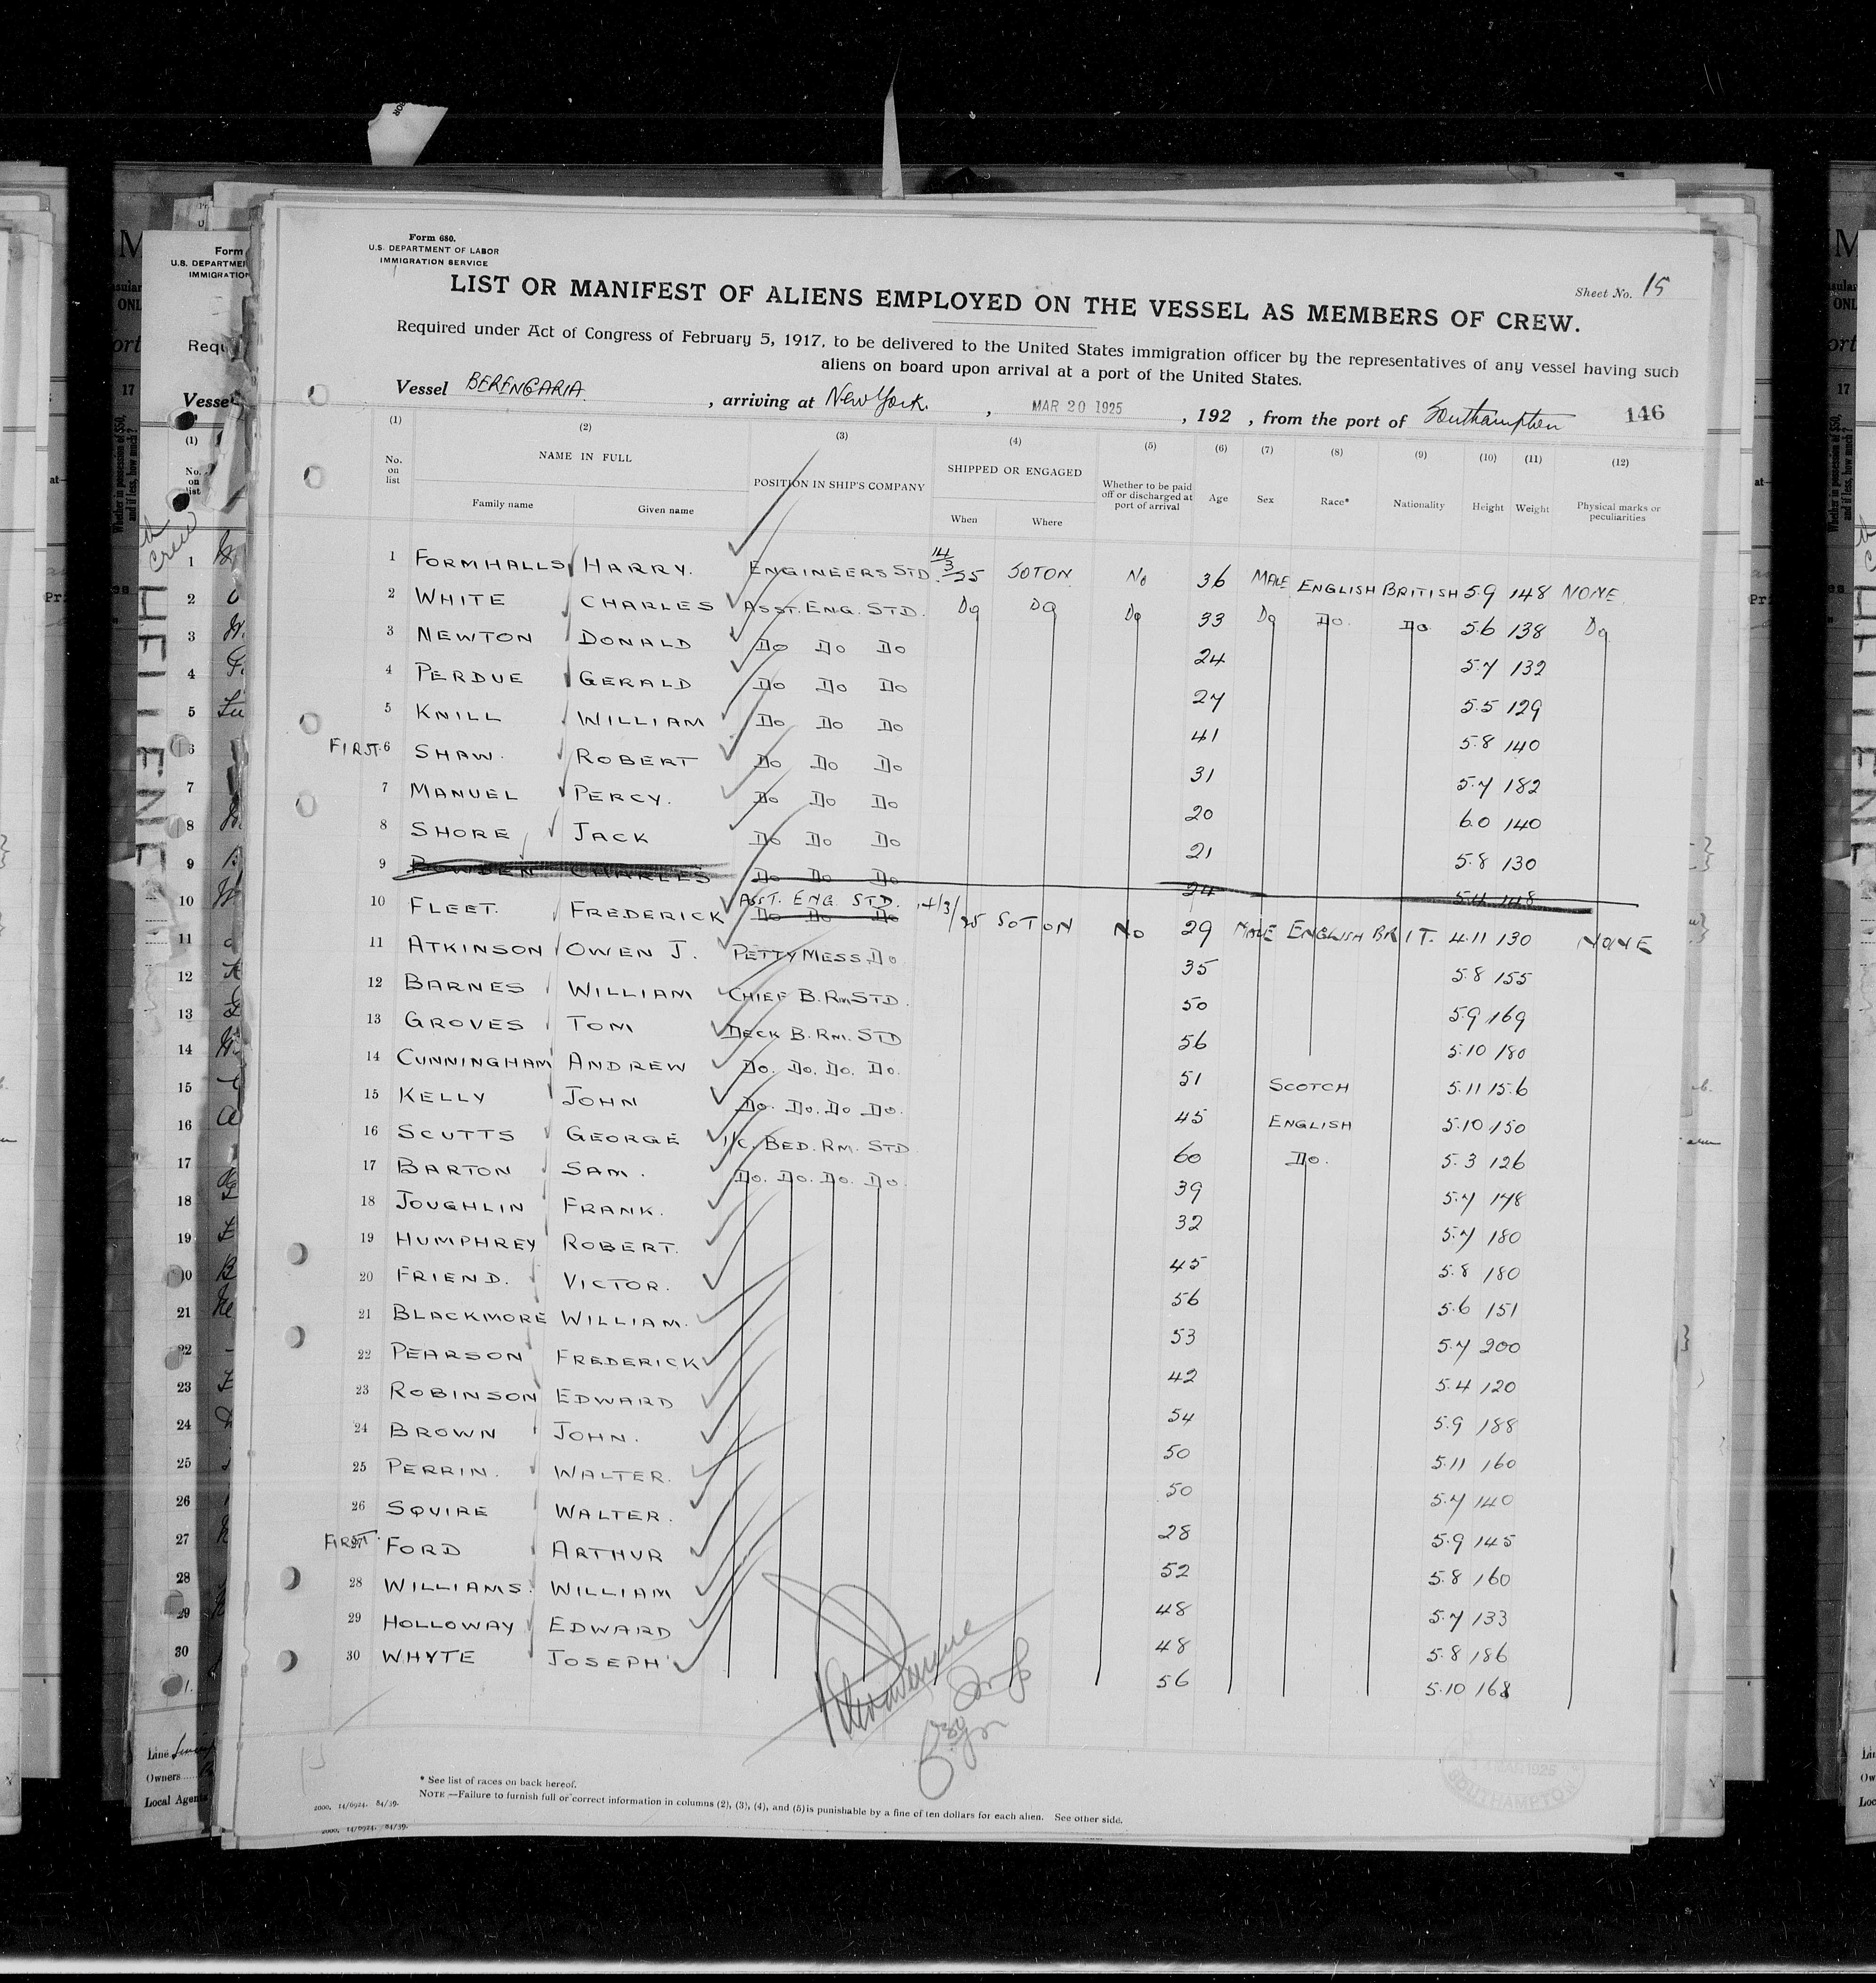 Form 680.
U.S. DEPARTMENT OF LABOR
IMMIGRATION SERVICE
Sheet No. 15
LIST OR MANIFEST OF ALIENS EMPLOYED ON THE VESSEL AS MEMBERS OF CREW.
Required under Act of Congress of February 5, 1917, to be delivered to the United States immigration officer by the representatives of any vessel having such
aliens on board upon arrival at a port of the United States.
Vessel BERENGARIA , arriving at New York. , MAR 20 1925 , 192 , from the port of Southampton 146
(1) (2) (3) (4) (5) (6) (7) (8) (9) (10) (11) (12)
No. on list NAME IN FULL Family name Given name POSITION IN SHIP'S COMPANY SHIPPED OR ENGAGED When Where Whether to be paid off or discharged at port of arrival Age Sex Race* Nationality Height Weight Physical marks or peculiarities
1 FORMHALLS HARRY. ENGINEERS STD. 14/3/25 SOTON No 36 MALE ENGLISH BRITISH 5.9 148 NONE.
2 WHITE CHARLES ASST. ENG. STD. Do Do Do 33 Do Do. Do 5.6 138 Do
3 NEWTON DONALD Do Do Do 24 5.7 132
4 PERDUE GERALD Do Do Do 27 5.5 129
5 KNILL WILLIAM Do Do Do 41 5.8 140
FIRST. 6 SHAW. ROBERT Do Do Do 31 5.7 182
7 MANUEL PERCY. Do Do Do 20 6.0 140
8 SHORE JACK Do Do Do 21 5.8 130
9 CHARLES Do Do Do 24 148
10 FLEET. FREDERICK ASST. ENG. STD. Do Do Do 14/3/25 SOTON No 29 MALE ENGLISH BRIT. 4.11 130 NONE
11 ATKINSON OWEN J. PETTY MESS. Do 35 5.8 155
12 BARNES WILLIAM CHIEF B. RM STD. 50 5.9 169
13 GROVES TOM DECK B. RM. STD 56 5.10 180
14 CUNNINGHAM ANDREW Do. Do. Do. Do. 51 SCOTCH 5.11 156
15 KELLY JOHN Do. Do. Do Do. 45 ENGLISH 5.10 150
16 SCUTTS GEORGE 1/C. BED. RM. STD 60 Do. 5.3 126
17 BARTON SAM. Do. Do. Do. Do. 39 5.7 178
18 JOUGHLIN FRANK. 32 5.7 180
19 HUMPHREY ROBERT. 45 5.8 180
20 FRIEND. VICTOR. 56 5.6 151
21 BLACKMORE WILLIAM. 53 5.7 200
22 PEARSON FREDERICK 42 5.4 120
23 ROBINSON EDWARD 54 5.9 188
24 BROWN JOHN. 50 5.11 160
25 PERRIN. WALTER. 50 5.7 140
26 SQUIRE WALTER. 28 5.9 145
FIRST. 27 FORD ARTHUR 52 5.8 160
28 WILLIAMS. WILLIAM 48 5.7 133
29 HOLLOWAY EDWARD 48 5.8 186
30 WHYTE JOSEPH 56 5.10 168
MAR 1925
SOUTHAMPTON
* See list of races on back hereof.
NOTE.—Failure to furnish full or correct information in columns (2), (3), (4), and (5) is punishable by a fine of ten dollars for each alien. See other side.
2000, 14/6924. 84/39.
2000, 14/6924. 84/39.